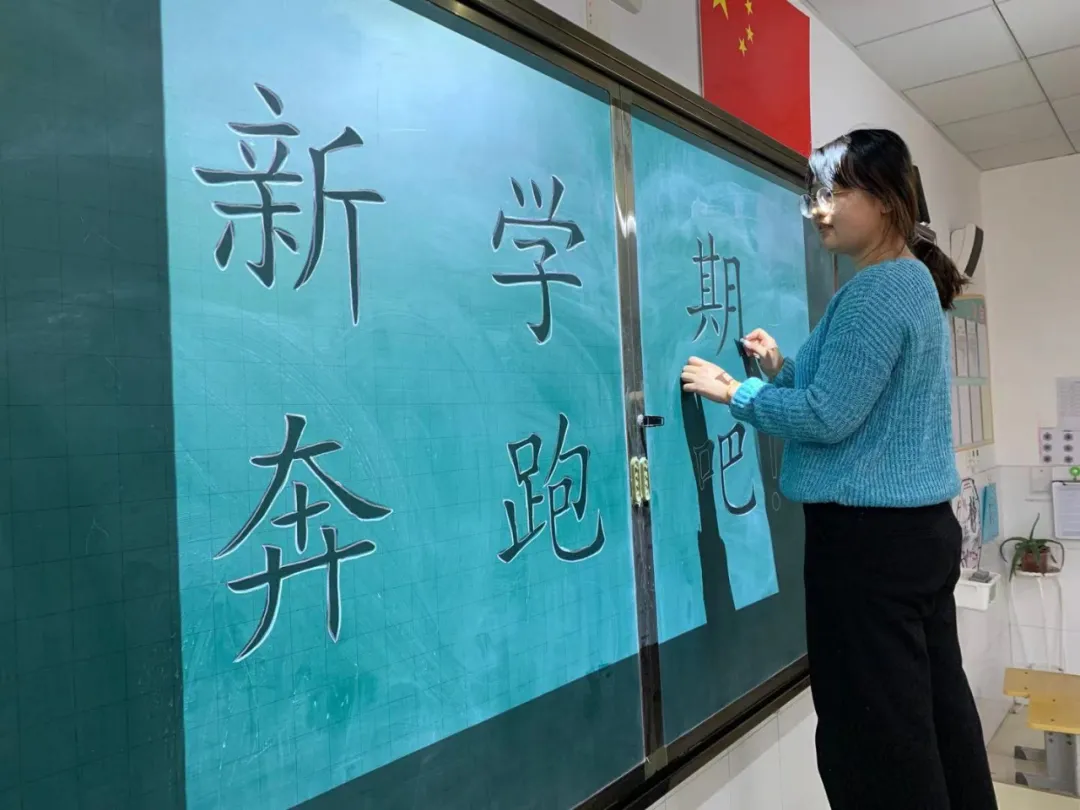 新学期
奔跑吧！